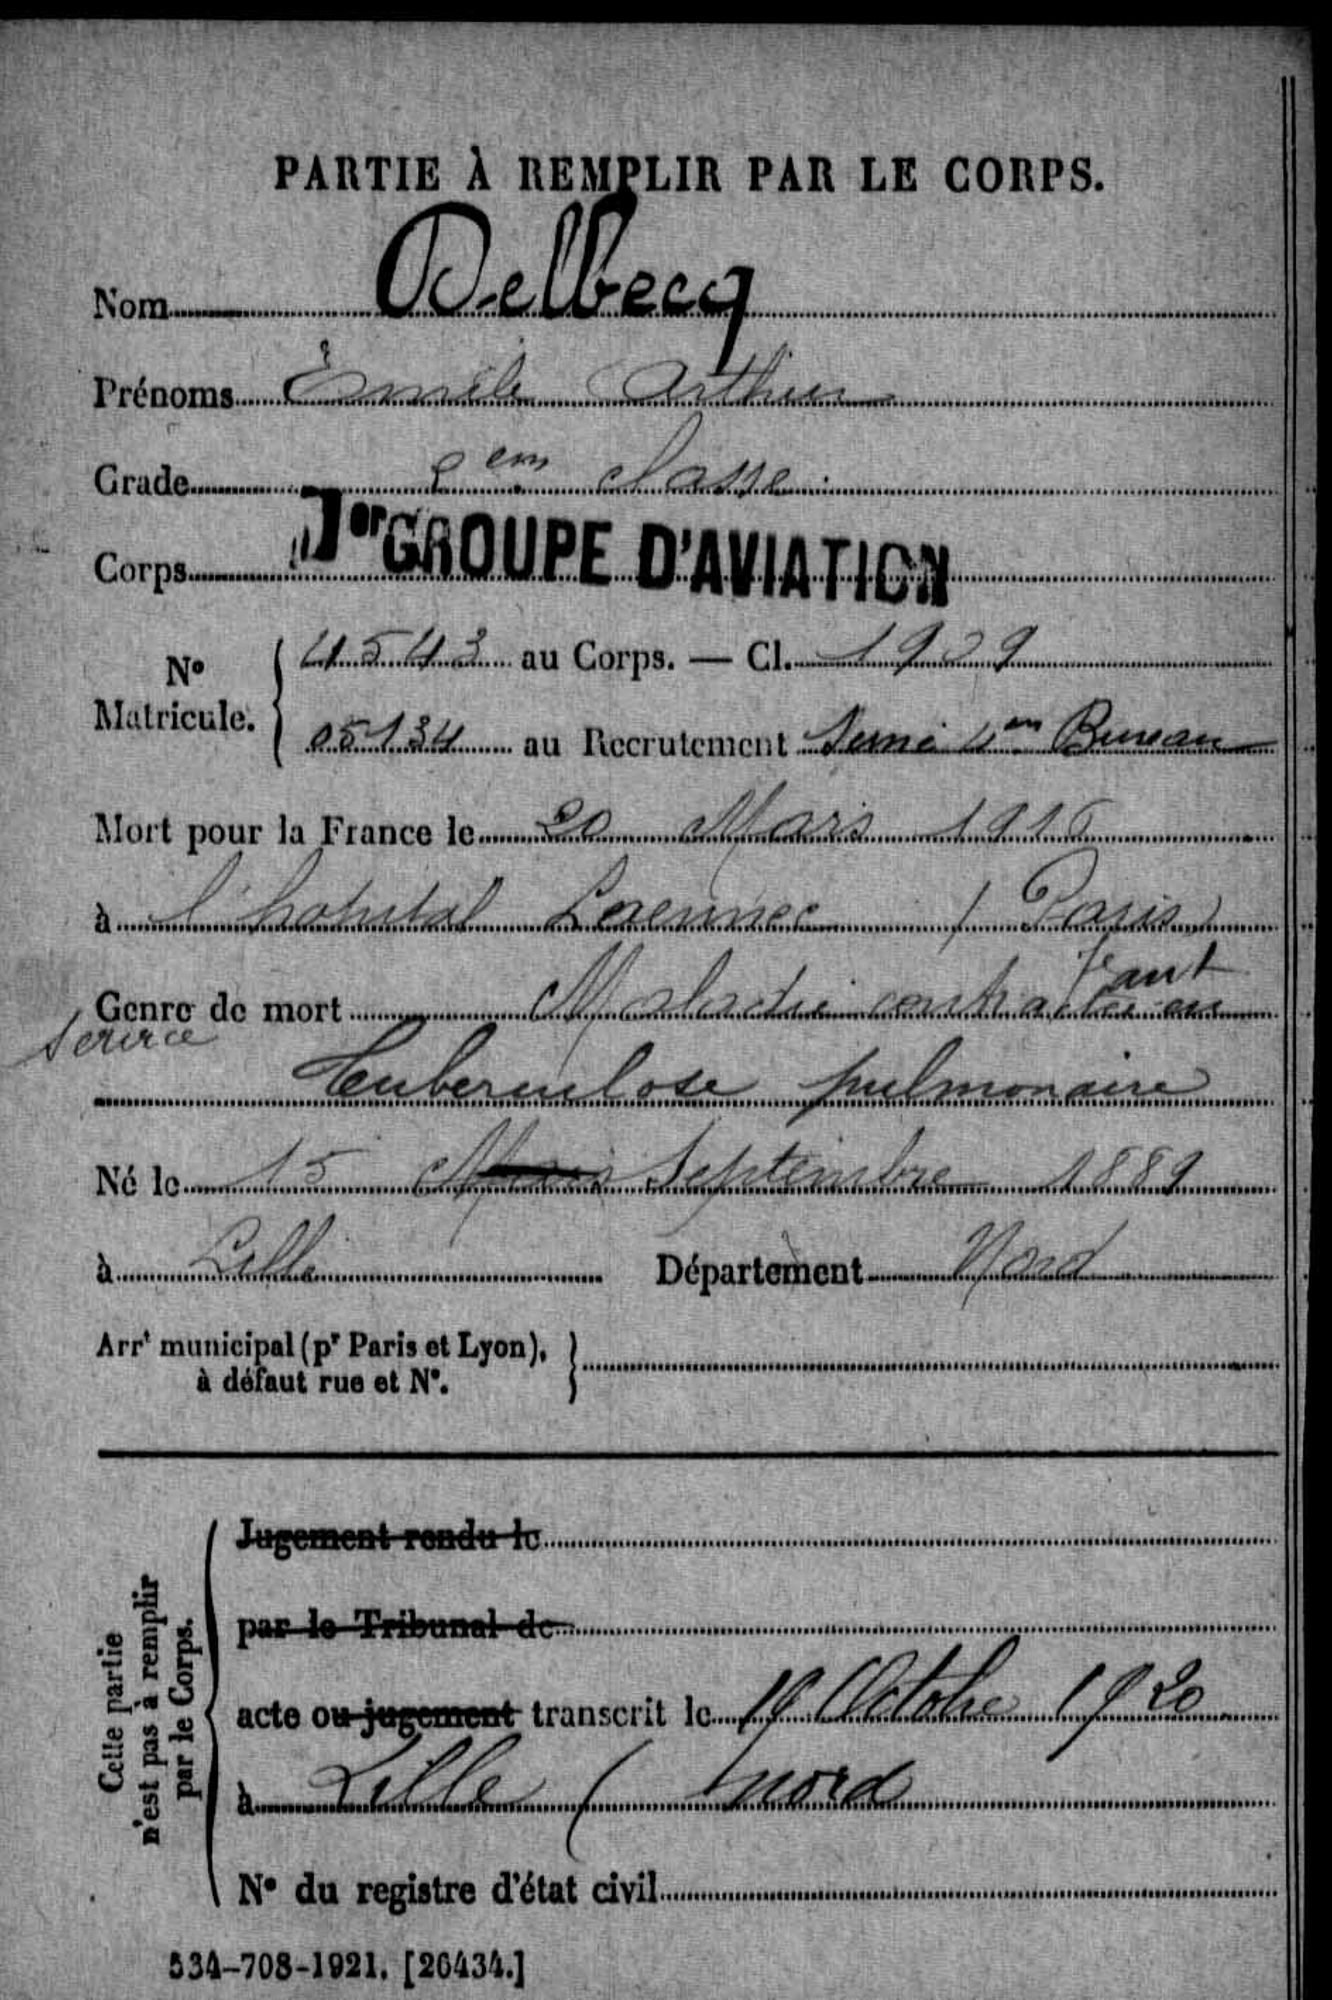 PARTIE À REMPLIR PAR LE CORPS.
Nom Delbecq
Prénoms Émile Arthur
Grade 2em classe
Corps 1er GROUPE D'AVIATION
No Matricule. 4543 au Corps. — Cl. 1909
05134 au Recrutement Seine 4em Bureau
Mort pour la France le 20 Mars 1916
à l'hôpital Laennec (Paris)
Genre de mort Maladie contractée en
service
Tuberculose pulmonaire
Né le 15 Mars Septembre 1889
à Lille Département Nord
Arrt municipal (pr Paris et Lyon),
à défaut rue et No.
Cette partie
n'est pas à remplir
par le Corps.
Jugement rendu le
par le Tribunal de
acte ou jugement transcrit le 19 Octobre 1920
à Lille (Nord
No du registre d'état civil
534-708-1921. [26434.]